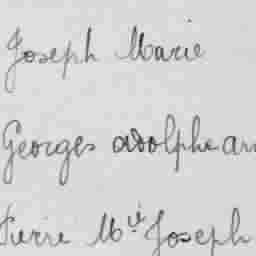 Joseph Marie
Georges adolphe
Pierre Mie Joseph